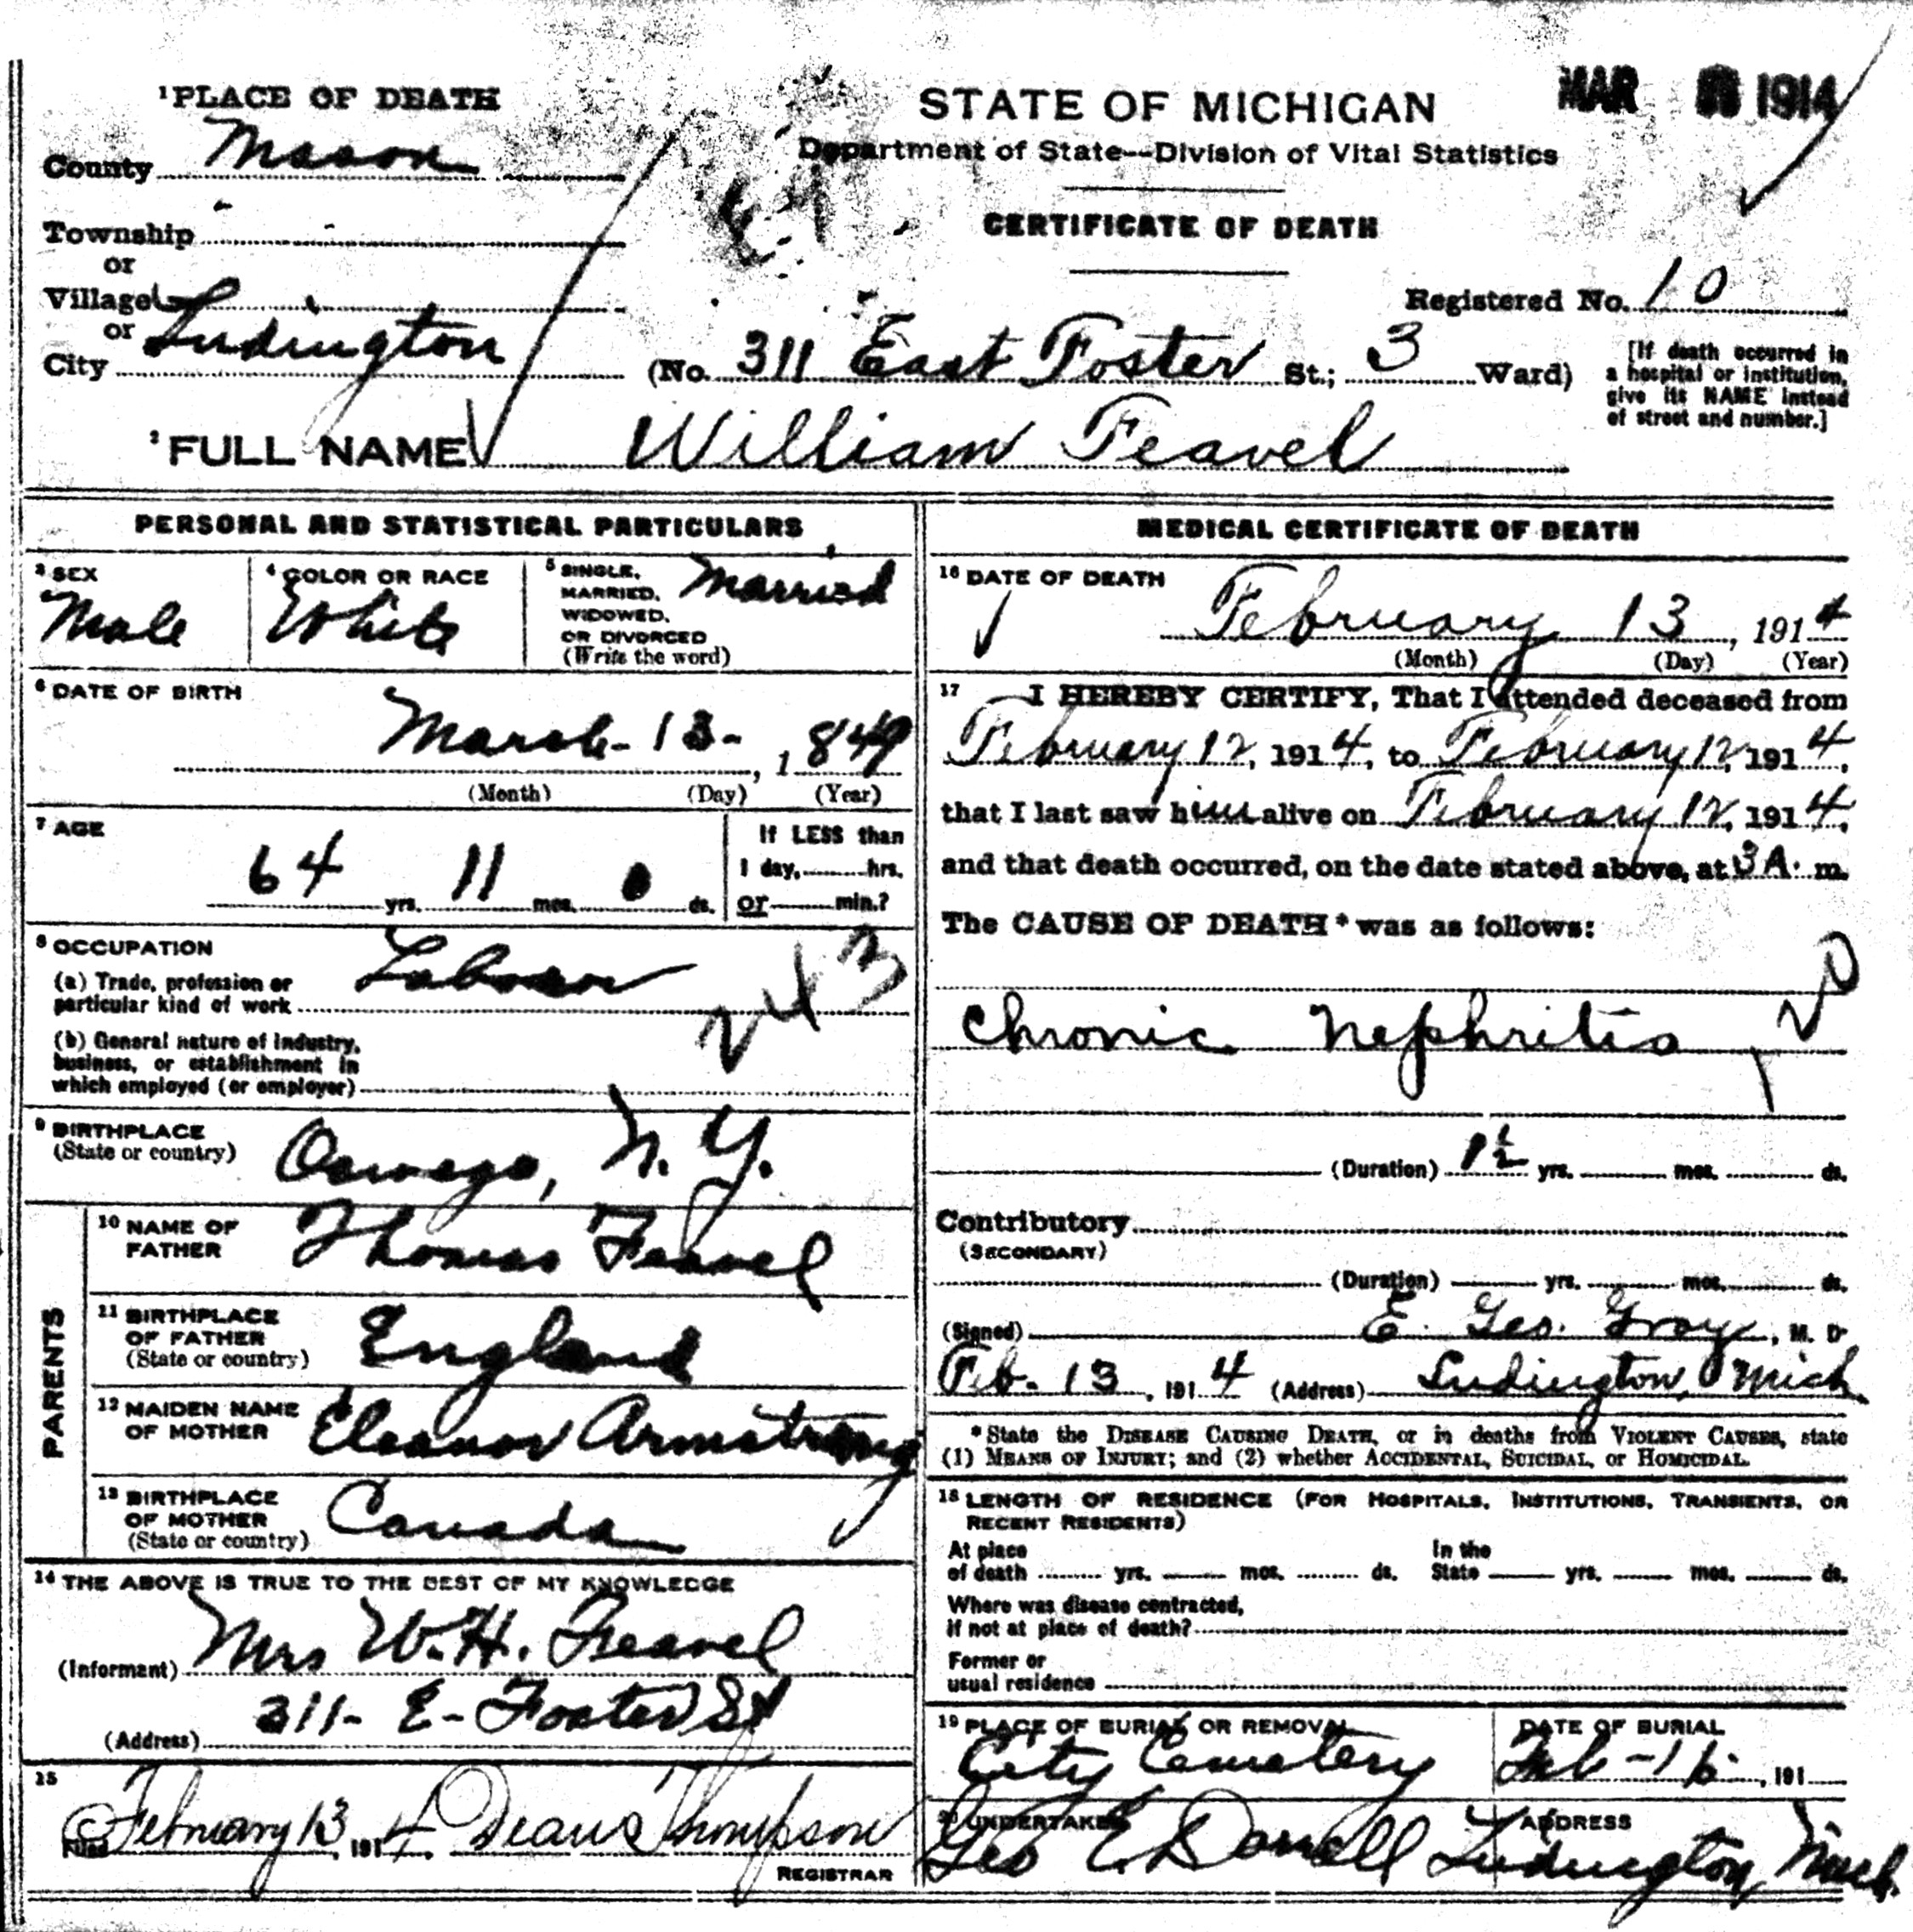 MAR 1914
1 PLACE OF DEATH
STATE OF MICHIGAN
County Mason
Department of State--Division of Vital Statistics
Township
CERTIFICATE OF DEATH
or
Village
Registered No. 10
or
City Ludington (No. 311 East Foster St.; 3 Ward)
[If death occurred in
a hospital or institution,
give its NAME instead
of street and number.]
2 FULL NAME William Feavel
PERSONAL AND STATISTICAL PARTICULARS
3 SEX
Male
4 COLOR OR RACE
White
5 SINGLE,
MARRIED,
WIDOWED,
OR DIVORCED
(Write the word)
Married
6 DATE OF BIRTH
March - 13 - , 1849
(Month) (Day) (Year)
7 AGE
64 yrs. 11 mos. 0 ds.
If LESS than
1 day, hrs.
or min.?
8 OCCUPATION
(a) Trade, profession or
particular kind of work Laborer
243
(b) General nature of industry,
business, or establishment in
which employed (or employer)
9 BIRTHPLACE
(State or country)
Oswego, N.Y.
PARENTS
10 NAME OF
FATHER
Thomas Feavel
11 BIRTHPLACE
OF FATHER
(State or country)
England
12 MAIDEN NAME
OF MOTHER
Eleanor Armstrong
13 BIRTHPLACE
OF MOTHER
(State or country)
Canada
14 THE ABOVE IS TRUE TO THE BEST OF MY KNOWLEDGE
(Informant) Mrs W.H. Feavel
(Address) 311 - E - Foster St
15
Filed February 13, 1914. Deans Thompson
REGISTRAR
MEDICAL CERTIFICATE OF DEATH
16 DATE OF DEATH
February 13, 1914
(Month) (Day) (Year)
17 I HEREBY CERTIFY, That I attended deceased from
February 12, 1914, to February 12, 1914,
that I last saw him alive on February 12, 1914,
and that death occurred, on the date stated above, at 3 A. m.
The CAUSE OF DEATH* was as follows:
Chronic Nephritis
(Duration) 1½ yrs. mos. ds.
Contributory
(SECONDARY)
(Duration) yrs. mos. ds.
(Signed) E. Geo. Gray, M. D
Feb. 13, 1914 (Address) Ludington, Mich
*State the DISEASE CAUSING DEATH, or in deaths from VIOLENT CAUSES, state
(1) MEANS OF INJURY; and (2) whether ACCIDENTAL, SUICIDAL, or HOMICIDAL.
18 LENGTH OF RESIDENCE (FOR HOSPITALS, INSTITUTIONS, TRANSIENTS, OR
RECENT RESIDENTS)
At place
of death yrs. mos. ds.
In the
State yrs. mos. ds.
Where was disease contracted,
if not at place of death?
Former or
usual residence
19 PLACE OF BURIAL OR REMOVAL
City Cemetery
DATE OF BURIAL
Feb - 16, 191
20 UNDERTAKER
Geo E. Dorrell
ADDRESS
Ludington, Mich.